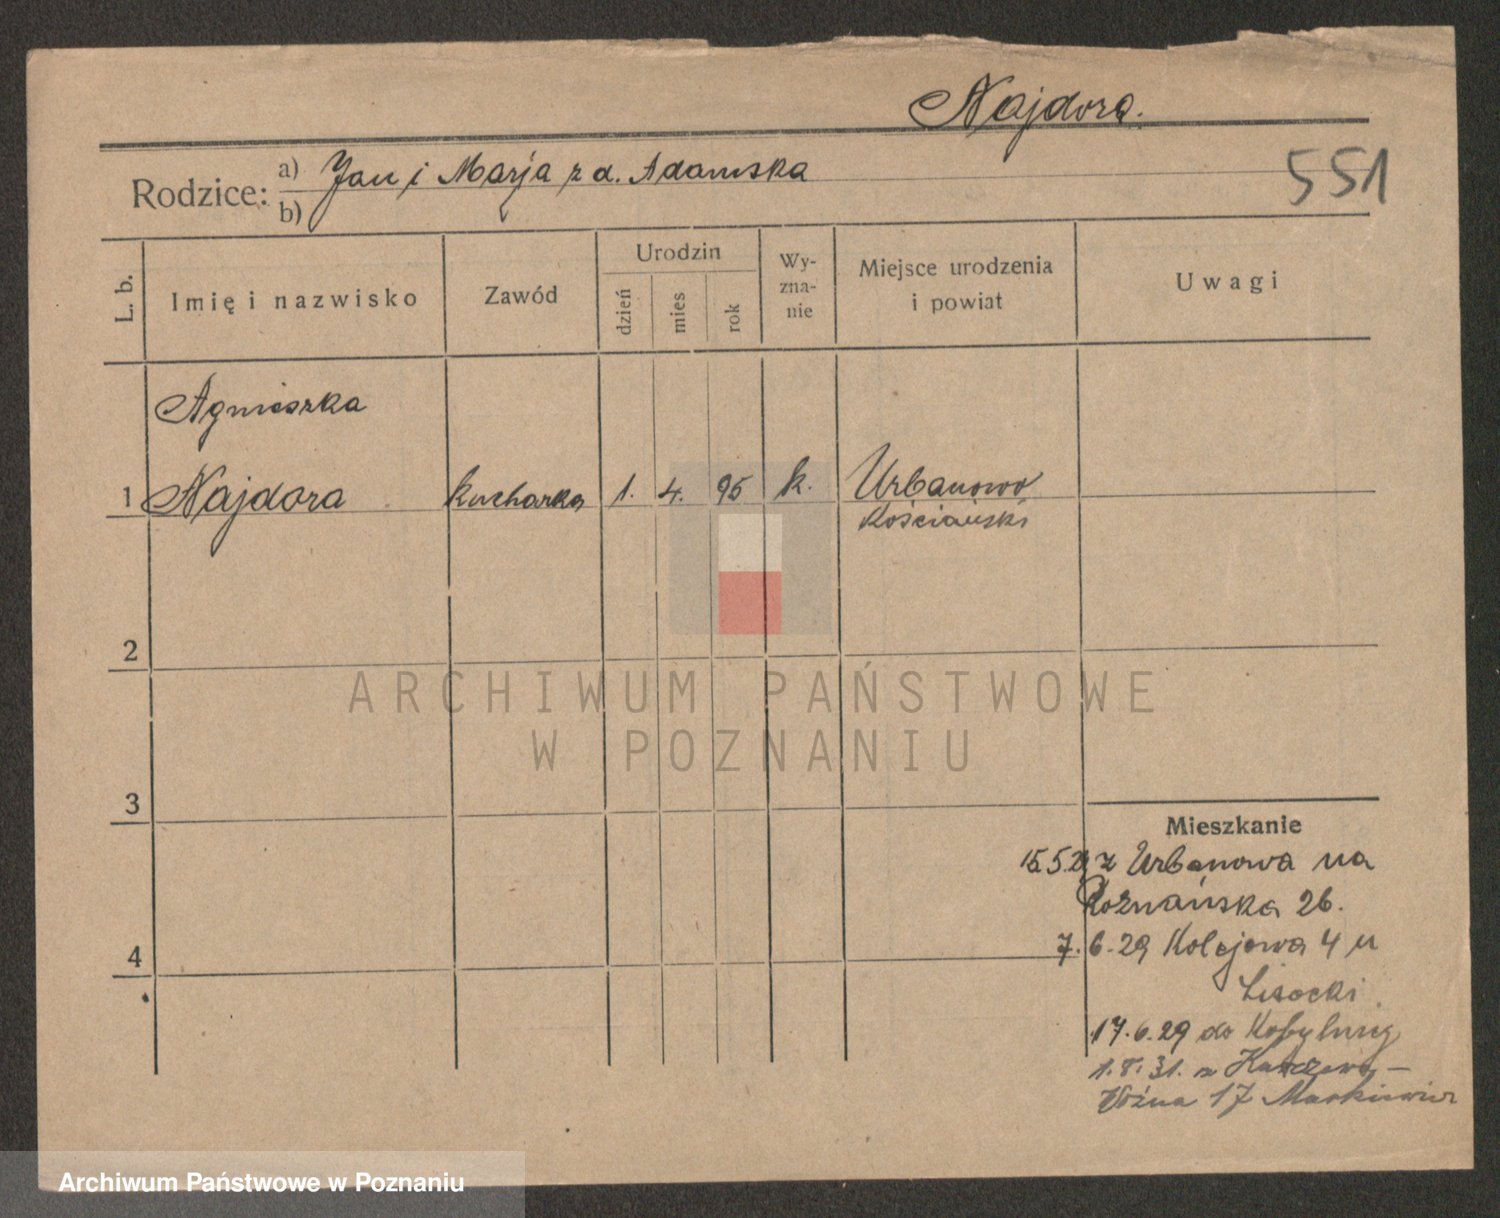 Najdora.
Rodzice: a) Jan i Marja z d. Adamska
b)
551
L. b.
Imię i nazwisko
Zawód
Urodzin
dzień
mies
rok
Wy-
zna-
nie
Miejsce urodzenia
i powiat
Uwagi
Agnieszka
1 Najdora kucharka 1. 4. 95 k. Urbanowo
Kościański
2
3
4
Mieszkanie
15.5.29 z Urbanowa na
Poznańska 26.
7.6.29 Kolejowa 4 u
Lisocki
17.6.29 do
1.8.31. z
Woźna 17
ARCHIWUM PAŃSTWOWE
W POZNANIU
Archiwum Państwowe w Poznaniu